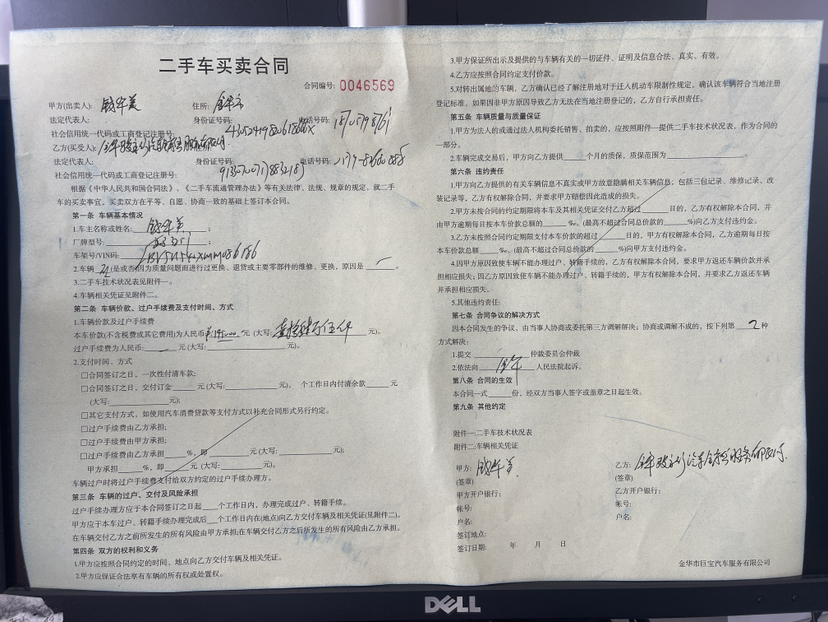 二手车买卖合同
合同编号: 0046569
甲方(出卖人): 住所: 金华市
法定代表人: 身份证号码: 电话号码:
社会信用统一代码或工商登记注册号:
乙方(买受人):
法定代表人: 身份证号码: 电话号码:
社会信用统一代码或工商登记注册号:
根据《中华人民共和国合同法》、《二手车流通管理办法》等有关法律、法规、规章的规定，就二手
车的买卖事宜，买卖双方在平等、自愿、协商一致的基础上签订本合同。
第一条 车辆基本情况
1.车主名称或姓名: ;
厂牌型号: ;
车架号/VIN码:
2.车辆 (是或否)因为质量问题而进行过更换、退货或主要零部件的维修、更换，原因是 。
3.二手车技术状况表见附件一。
4.车辆相关凭证见附件二。
第二条 车辆价款、过户手续费及支付时间、方式
1.车辆价款及过户手续费
本车价款(不含税费或其它费用)为人民币: 元 (大写: 元)。
过户手续费为人民币: 元 (大写: 元)。
2.支付时间、方式
□合同签订之日，一次性付清车款;
□合同签订之日，交付订金 元 (大写: 元)， 个工作日内付清余款 元
(大写: 元);
□其它支付方式，如使用汽车消费贷款等支付方式以补充合同形式另行约定。
□过户手续费由乙方承担;
□过户手续费由甲方承担;
□过户手续费由乙方承担 %，即 元 (大写: 元);
甲方承担 %，即 元 (大写: 元)。
车辆过户时将过户手续费支付给双方约定的过户手续办理方。
第三条 车辆的过户、交付及风险承担
过户手续办理方应于本合同签订之日起 个工作日内，办理完成过户、转籍手续。
甲方应于本车过户、转籍手续办理完成后 个工作日内在(地点)向乙方交付车辆及相关凭证(见附件二)。
在车辆交付乙方之前所发生的所有风险由甲方承担;在车辆交付乙方之后所发生的所有风险由乙方承担。
第四条 双方的权利和义务
1.甲方应按照合同约定的时间、地点向乙方交付车辆及相关凭证。
2.甲方应保证合法享有车辆的所有权或处置权。
3.甲方保证所出示及提供的与车辆有关的一切证件、证明及信息合法、真实、有效。
4.乙方应按照合同约定支付价款。
5.对转出属地的车辆，乙方确认已经了解注册地对于迁入机动车限制性规定，确认该车辆符合当地注册
登记标准。如果因非甲方原因导致乙方无法在当地注册登记的，乙方自行承担责任。
第五条 车辆质量与质量保证
1.甲方为法人的或通过法人机构委托销售、拍卖的，应按照附件一提供二手车技术状况表，作为合同的
一部分。
2.车辆完成交易后，甲方向乙方提供 个月的质保，质保范围为 。
第六条 违约责任
1.甲方向乙方提供的有关车辆信息不真实或甲方故意隐瞒相关车辆信息，包括三包记录、维修记录、改
装记录等，乙方有权解除合同，并要求甲方赔偿因此造成的损失。
2.甲方未按合同的约定期限将本车及其相关凭证交付乙方超过 日的，乙方有权解除本合同，并
由甲方逾期每日按本车价款总额的 %。(最高不超过合同总价款的 %)向乙方支付违约金。
3.乙方未按照合同约定期限支付本车价款的超过 日的，甲方有权解除本合同，乙方逾期每日按
本车价款总额 %。(最高不超过合同总价款的 %)向甲方支付违约金。
4.因甲方原因致使车辆不能办理过户、转籍手续的，乙方有权解除本合同，要求甲方返还车辆价款并承
担相应损失;因乙方原因致使车辆不能办理过户、转籍手续的，甲方有权解除本合同，并要求乙方返还车辆
并承担相应损失。
5.其他违约责任:
第七条 合同争议的解决方式
因本合同发生的争议，由当事人协商或委托第三方调解解决;协商或调解不成的，按下列第 2 种
方式解决:
1.提交 仲裁委员会仲裁
2.依法向 人民法院起诉。
第八条 合同的生效
本合同一式 份，经双方当事人签字或盖章之日起生效。
第九条 其他约定
附件一:二手车技术状况表
附件二:车辆相关凭证
甲方: 乙方:
(签章) (签章)
甲方开户银行: 乙方开户银行:
帐号: 帐号:
户名: 户名:
签订地点:
签订日期: 年 月 日
金华市巨宝汽车服务有限公司
DELL